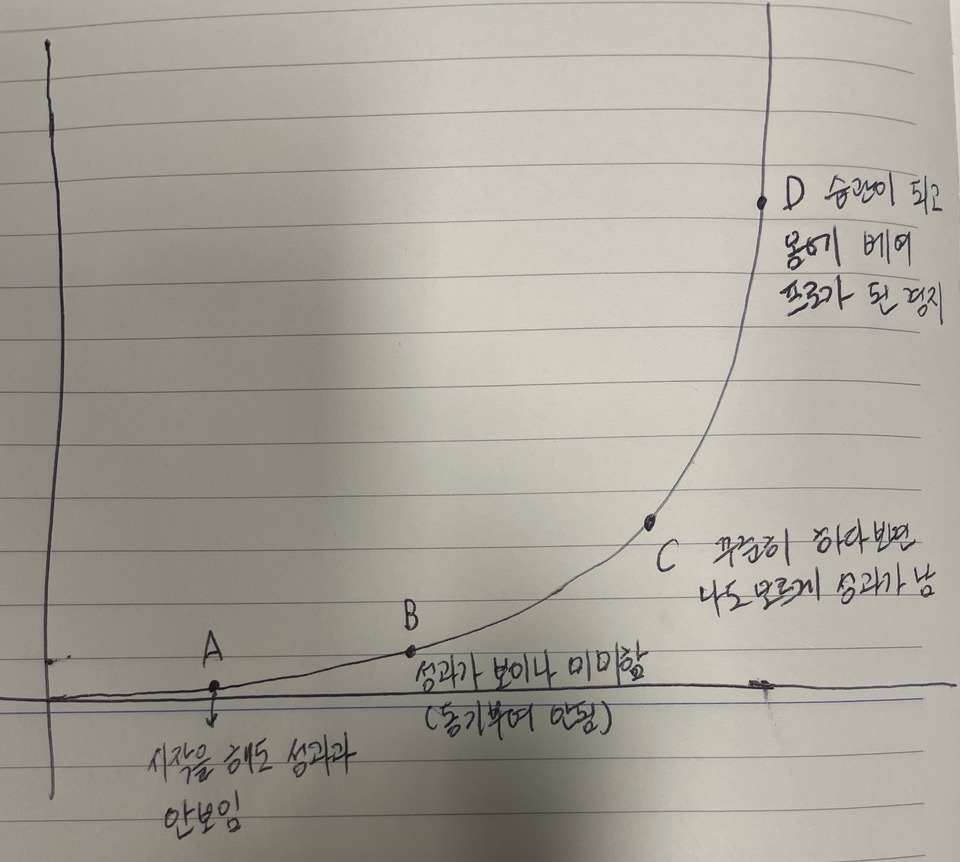 D 습관이 되고
몸에 베여
프로가 된 경지
C 꾸준히 하다보면
나도 모르게 성과가 남
B
성과가 보이나 미미함
(동기부여 안됨)
A
시작을 해도 성과과
안보임